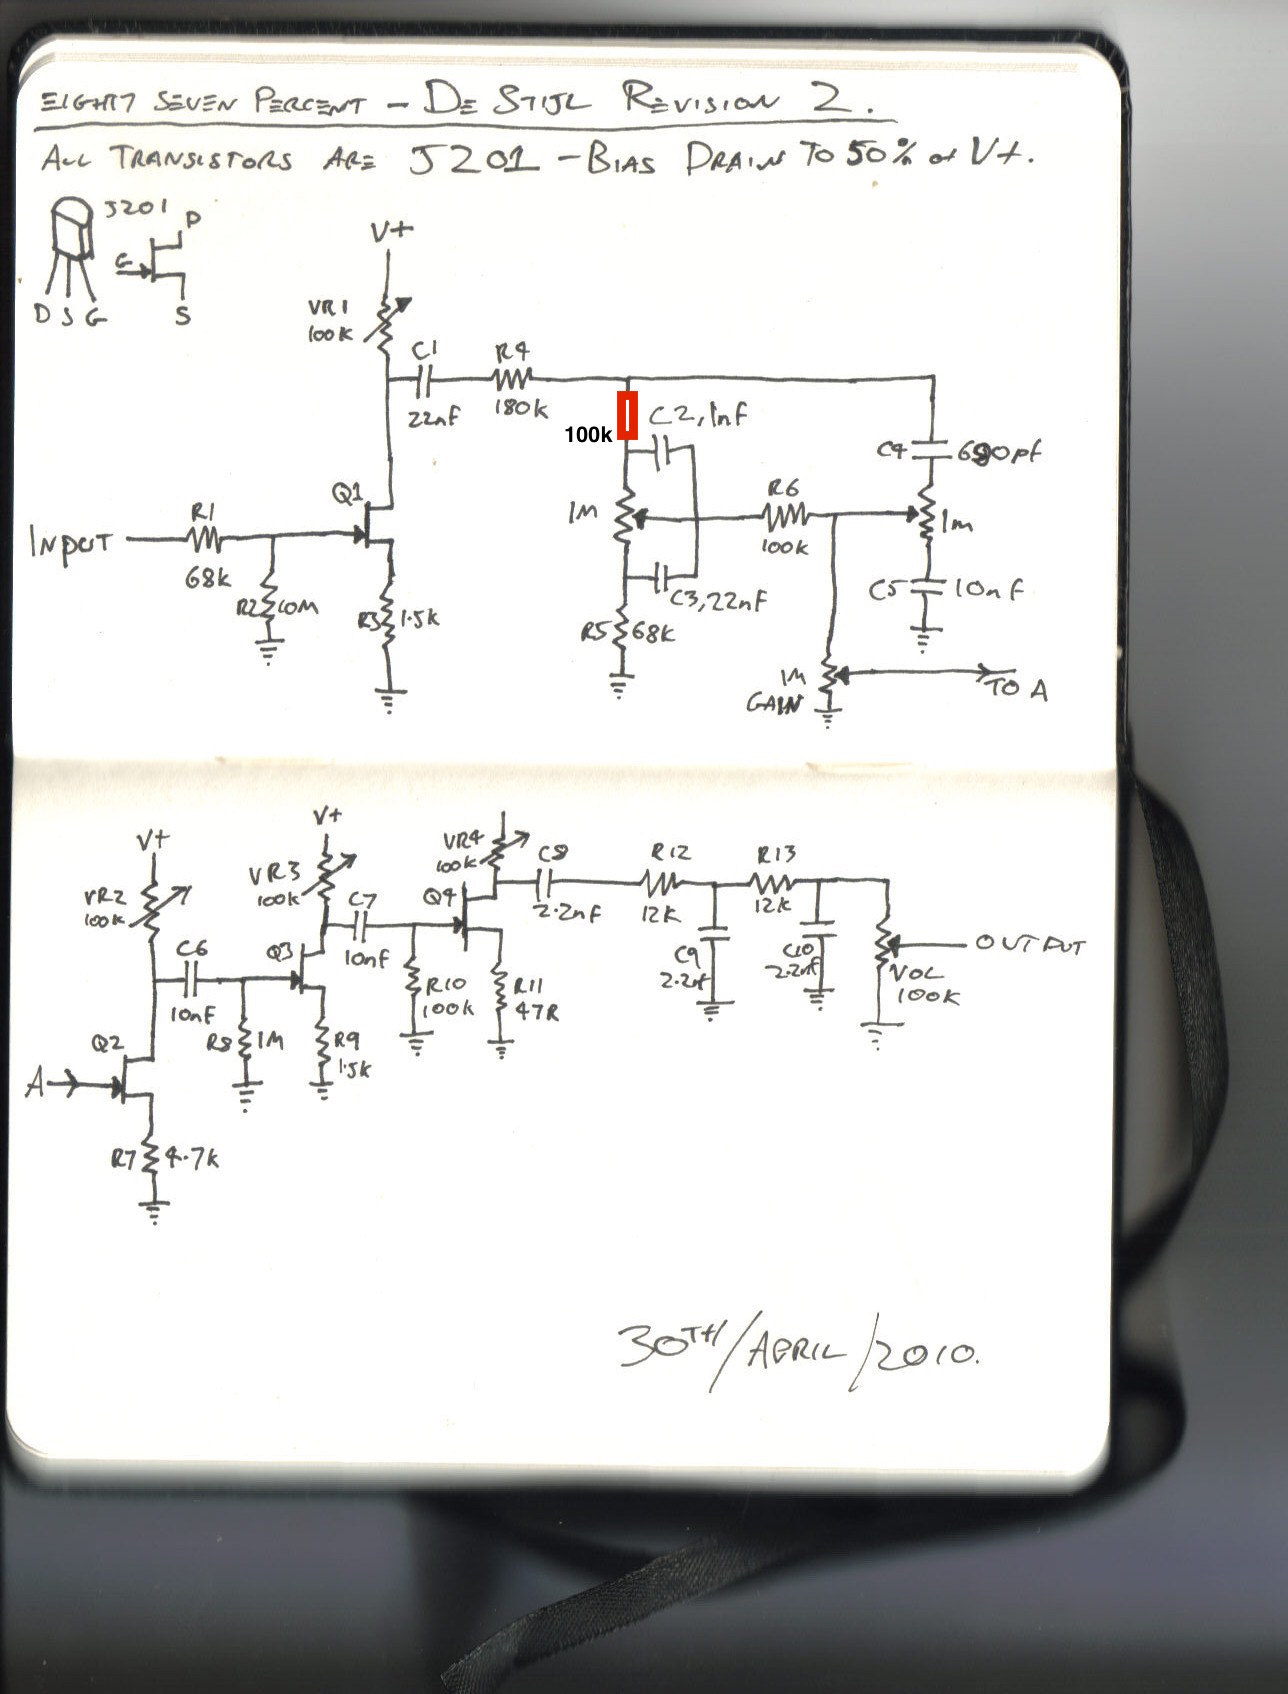 EIGHT7 SEVEN PERCENT - DE STIJL REVISION 2.
ALL TRANSISTORS ARE J201 - BIAS DRAIN TO 50% of V+.
J201
D
G
D S G
S
V+
VR1
100K
C1
R4
22nF
180k
C2, 1nF
100k
C4
680pf
Q1
R1
INPUT
68k
1M
R6
100k
1M
R2
10M
R3
1.5k
C3, 22nF
C5
10nF
R5
68K
1M
GAIN
TO A
V+
V+
VR4
100k
C8
R12
R13
VR2
100K
VR3
100k
C7
Q4
2.2nF
12K
12k
C6
Q3
10nF
C9
2.2nf
C10
2.2nf
OUTPUT
VOL
100K
10nF
R10
100k
R11
47R
Q2
R8
1M
R9
1.5k
A
R7
4.7k
30TH/APRIL/2010.